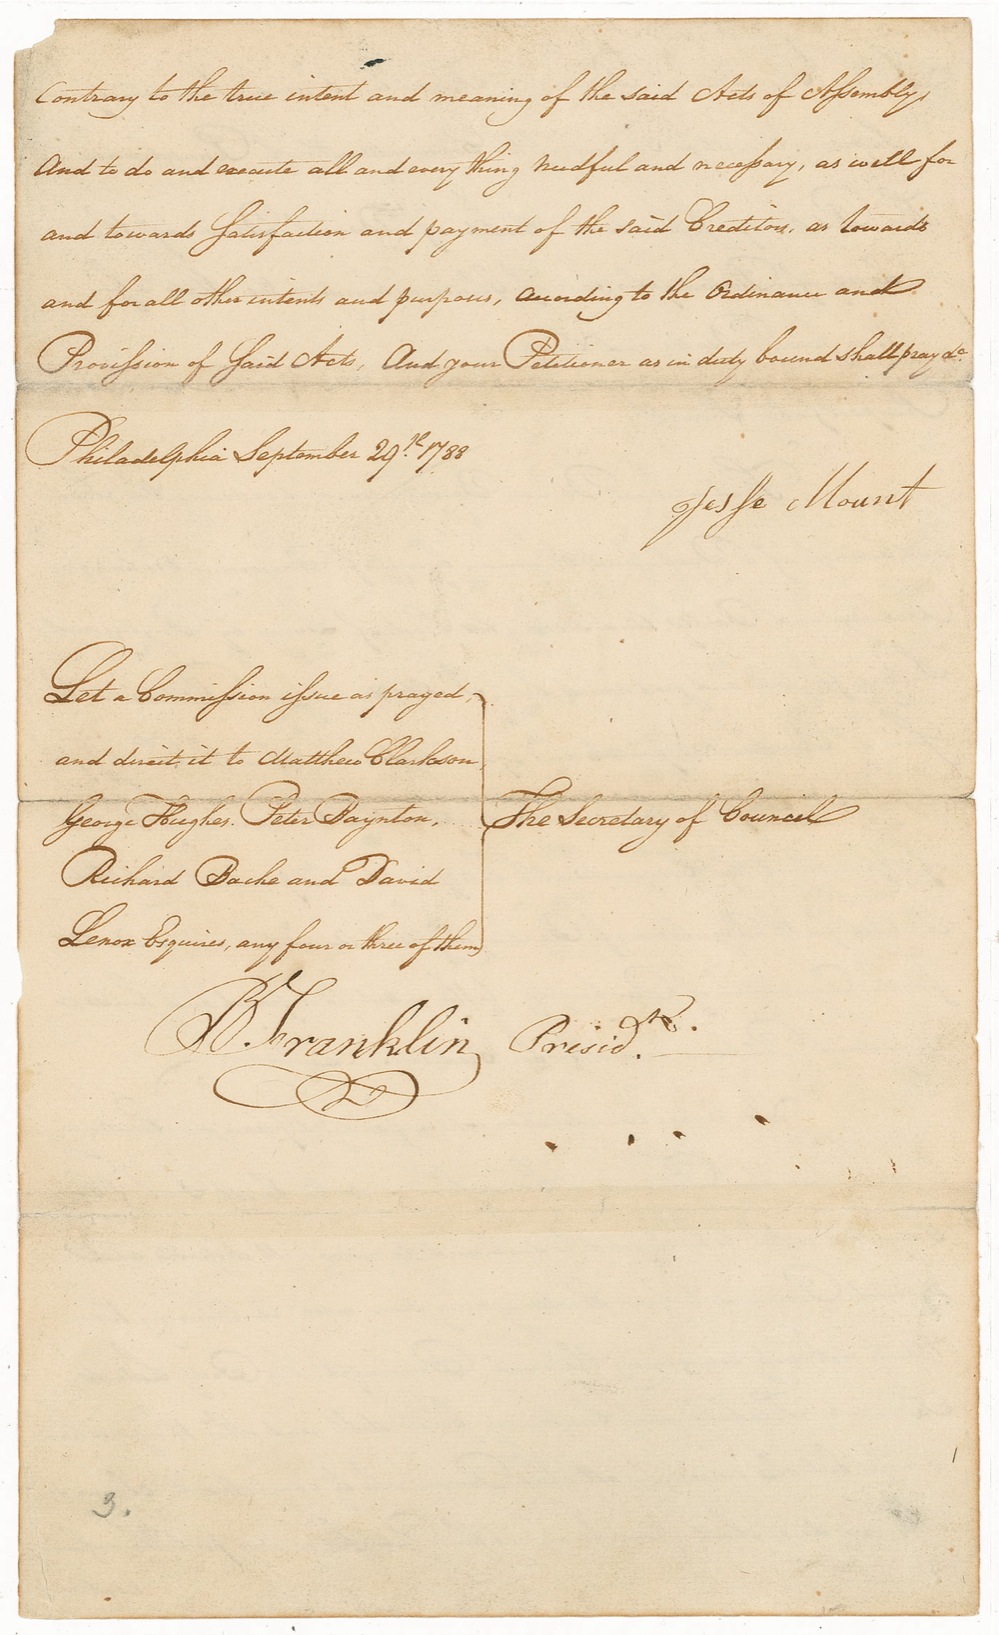 Contrary to the true intent and meaning of the said Acts of Assembly,
And to do and execute all and every thing needful and necessary, as well for
and towards Satisfaction and payment of the said Creditors, as towards
and for all other intents and purposes, according to the Ordinance and
Provission of Said Acts, And your Petitioner as in duty bound shall pray &c.
Philadelphia September 29th. 1788
Jesse Mount
Let a Commission issue as prayed,
and direct it to Matthew Clarkson,
George Hughes. Peter Baynton,
The Secretary of Council
Richard Bache and David
Lenox Esquires, any four or three of them
B. Franklin Presidt.
3.